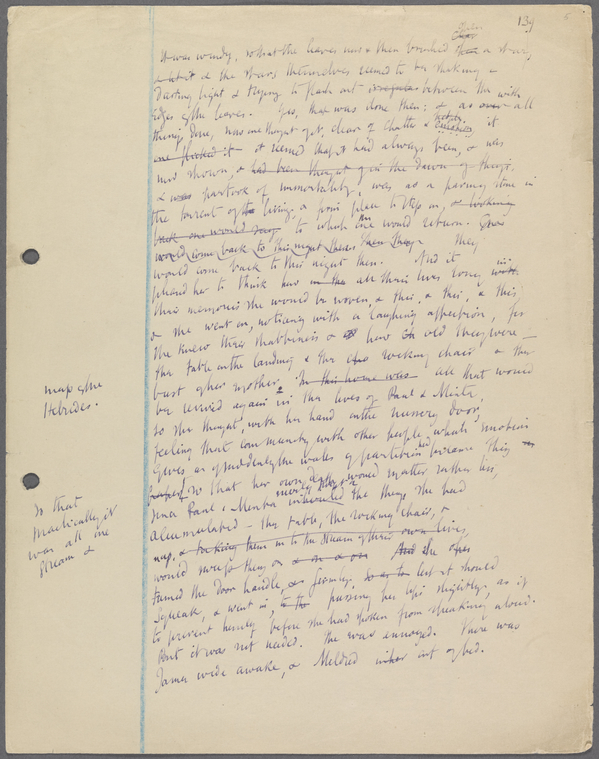 139
It was windy, so that the leaves now & then brushed a star,
& the stars themselves seemed to be shaking &
darting light & trying to flash out between the
edges of the leaves. Yes, that was done then; & as all
things done, now one thought of, clear of chatter & it
it seemed that it had always been, & was
now shown, &
& partook of immortality, was as a
the torrent of living, a place to step
to which one would return.
would come back to this night they
would come back to this night then. And it
pleased her to think how all their lives long
their memories she would be woven, & this, & this, & this
& she went on, noticing with a laughing affection, for
she knew their shabbiness & how old they were –
the table on the landing & the rocking chair & the
bust of her mother. All that would
be revived again in the lives of Paul & Minta,
so she thought, with her hand on the nursery door,
feeling that community with other people which emotion
gives as if suddenly the walls of partition had become thin
so that her own death would matter rather less,
since Paul & Minta the things she had
accumulated – the table, the rocking chair, &
map, & taking them in to the stream of their own lives,
would them on & on & on she
turned the door handle, firmly, lest it should
squeak, & went in, pursing her lips slightly, as if
to prevent herself before she had spoken from speaking aloud.
But it was not needed. She was annoyed. There was
James wide awake, & Mildred out of bed.
map of the
Hebrides.
so that
practically it
was all one
stream &